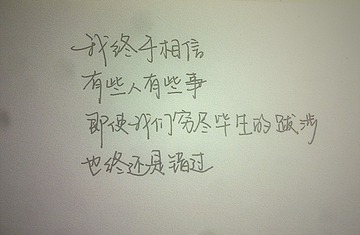 我终于相信
有些人有些事
即使我们穷尽毕生的跋涉
也终还是错过